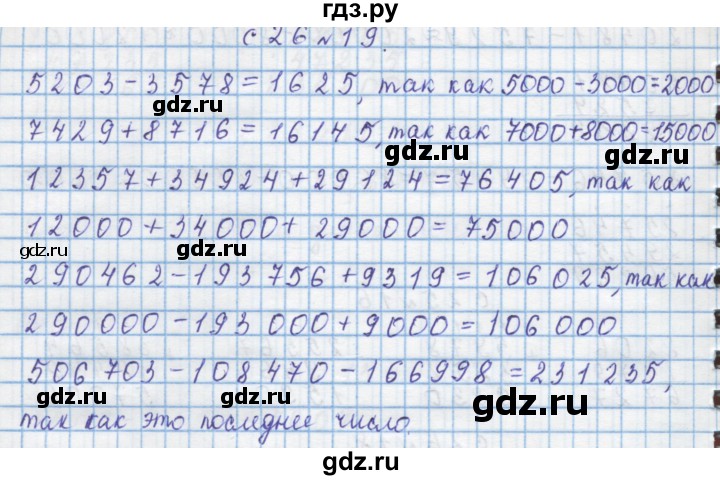 гдз.ру
с 26 № 19.
5203 - 3578 = 1625, так как 5000 - 3000 = 2000
gdz.ru
gdz.ru
7429 + 8716 = 16145, так как 7000 + 8000 = 15000
gdz.ru
12357 + 34924 + 29124 = 76405, так как
12000 + 34000 + 29000 = 75000
gdz.ru
gdz.ru
290462 - 193756 + 9319 = 106025, так как
gdz.ru
290000 - 193000 + 9000 = 106000
506703 - 108470 - 166998 = 231235,
gdz.ru
gdz.ru
так как это последнее число.
gdz.ru